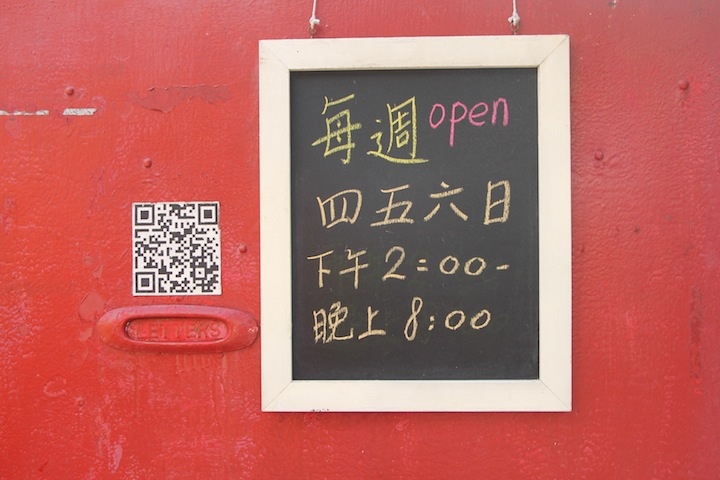 每週 open
四五六日
下午2:00-
晚上8:00
LETTERS